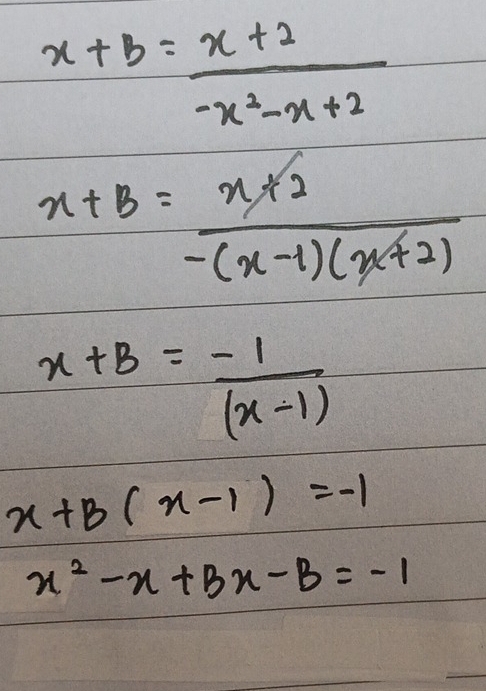 x + B = x + 2 / -x² - x + 2
x + B = x + 2 / -(x - 1)(x + 2)
x + B = -1 / (x - 1)
x + B ( x - 1 ) = -1
x² - x + Bx - B = -1